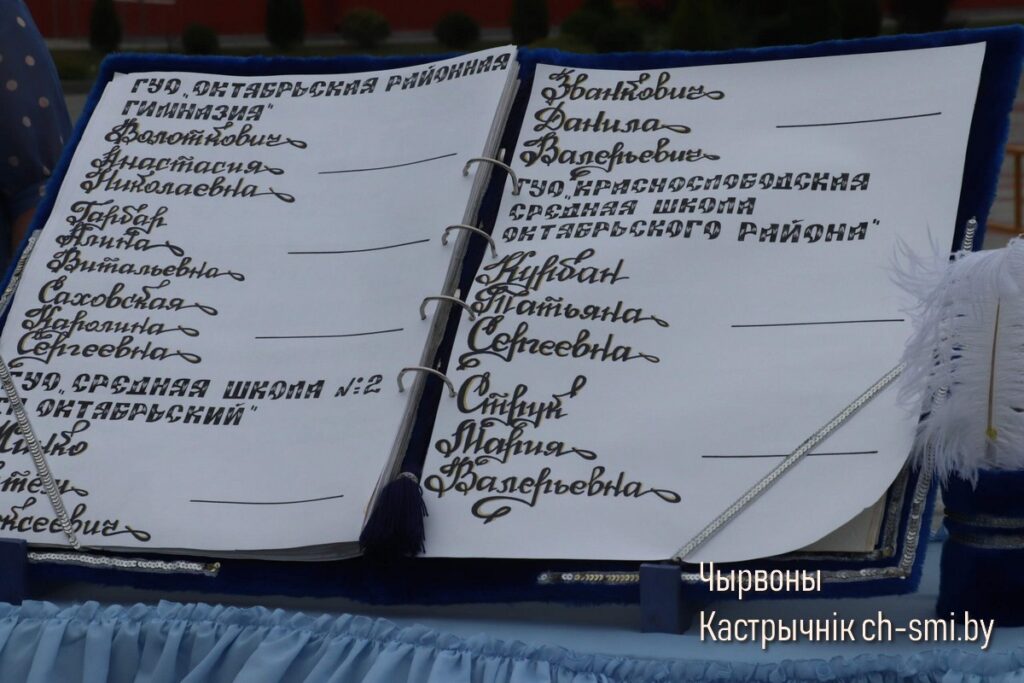 ГУО „ОКТЯБРЬСКАЯ РАЙОННАЯ
ГИМНАЗИЯ"
Волоткович
Анастасия
Николаевна
Гарбар
Алина
Витальевна
Саховская
Каролина
Сергеевна
ГУО „СРЕДНЯЯ ШКОЛА №2
ОКТЯБРЬСКИЙ"
Званкович
Данила
Валерьевич
ГУО „КРАСНОСЛОБОДСКАЯ
СРЕДНЯЯ ШКОЛА
ОКТЯБРЬСКОГО РАЙОНА"
Курбан
Татьяна
Сергеевна
Струк
Мария
Валерьевна
Чырвоны
Кастрычнік ch-smi.by